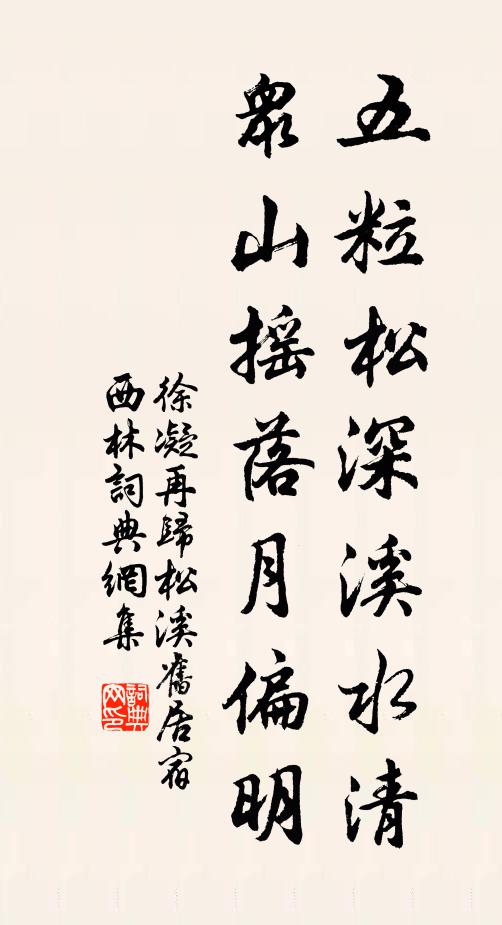 五粒松深溪水清
眾山摇落月偏明
徐凝再歸松溪舊居宿
西林詞典網集
詞典网印